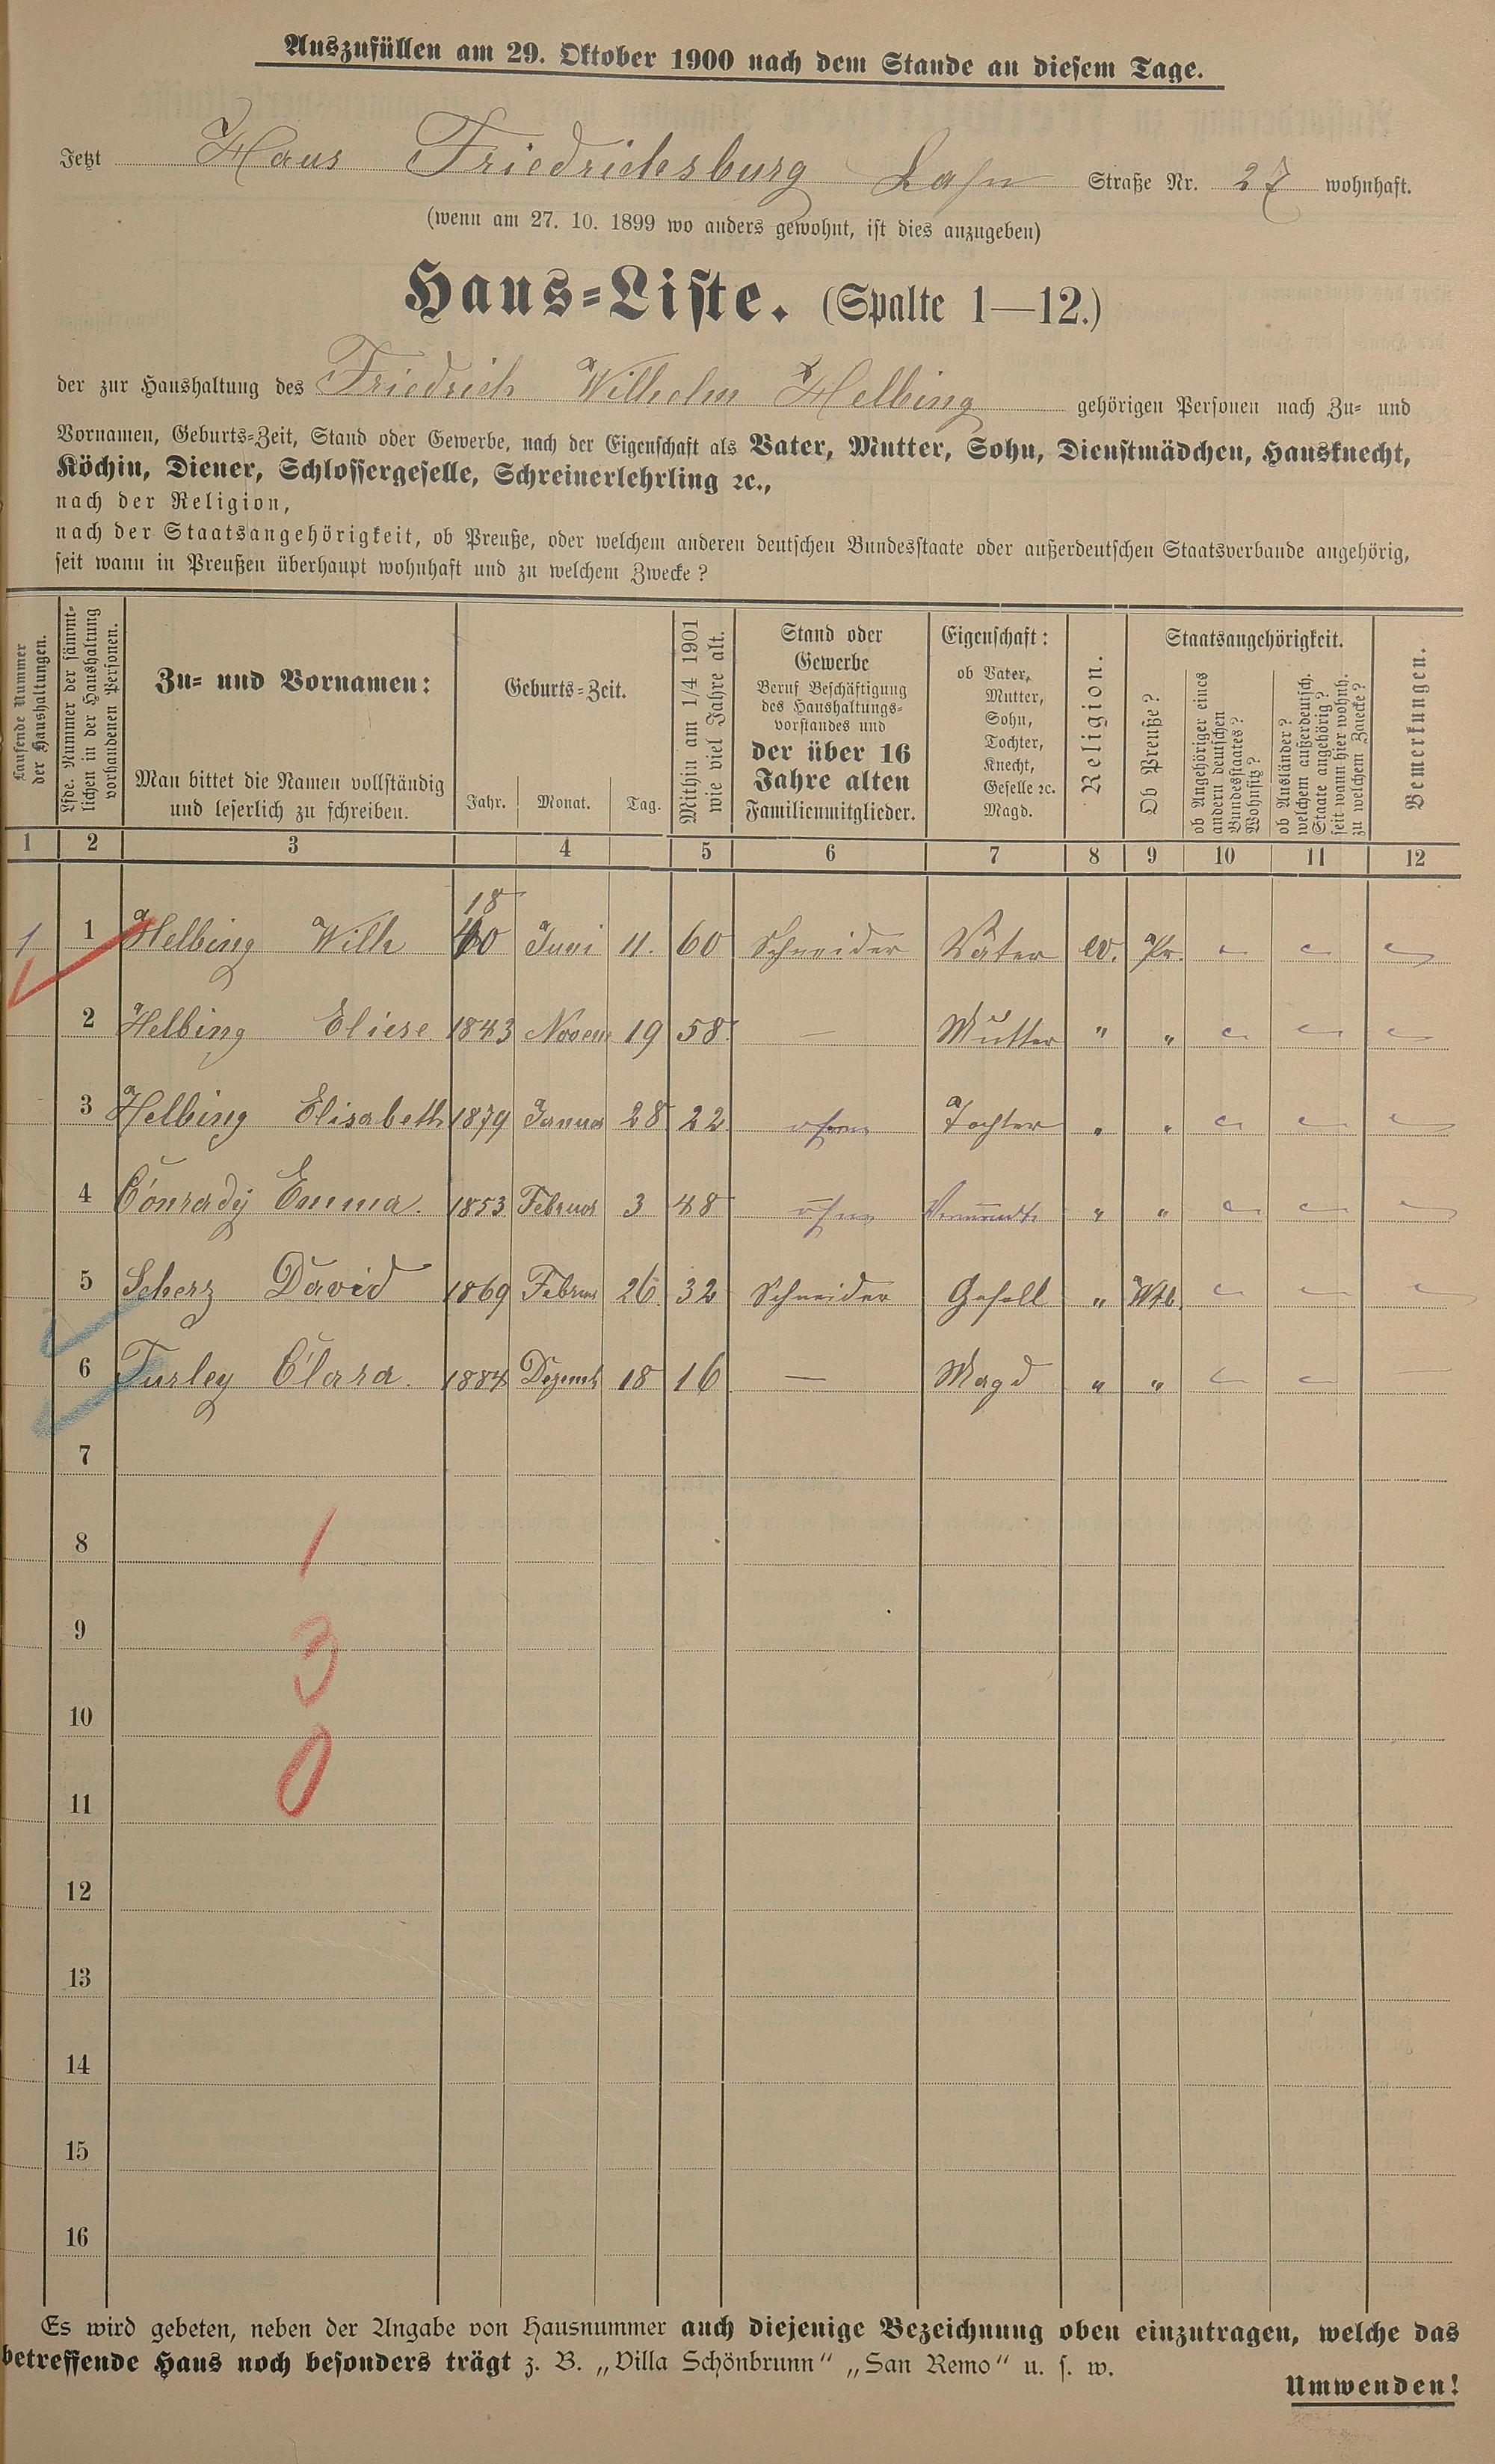 Auszufüllen am 29. Oktober 1900 nach dem Stande an diesem Tage.
Jetzt Haus Friedrichsburg Lahn Straße Nr. 27 wohnhaft.
(wenn am 27. 10. 1899 wo anders gewohnt, ist dies anzugeben)
Haus-Liste. (Spalte 1—12.)
der zur Haushaltung des Friedrich Wilhelm Helbing gehörigen Personen nach Zu- und
Vornamen, Geburts-Zeit, Stand oder Gewerbe, nach der Eigenschaft als Vater, Mutter, Sohn, Dienstmädchen, Hausknecht,
Köchin, Diener, Schlossergeselle, Schreinerlehrling ꝛc.,
nach der Religion,
nach der Staatsangehörigkeit, ob Preuße, oder welchem anderen deutschen Bundesstaate oder außerdeutschen Staatsverbande angehörig,
seit wann in Preußen überhaupt wohnhaft und zu welchem Zwecke?
Laufende Nummer
der Haushaltungen.
Lfde. Nummer der sämmt-
lichen in der Haushaltung
vorhandenen Personen.
Zu- und Vornamen:
Man bittet die Namen vollständig
und leserlich zu schreiben.
Geburts-Zeit.
Jahr. Monat. Tag.
Mithin am 1/4 1901
wie viel Jahre alt.
Stand oder
Gewerbe
Beruf Beschäftigung
des Haushaltungs-
vorstandes und
der über 16
Jahre alten
Familienmitglieder.
Eigenschaft:
ob Vater,
Mutter,
Sohn,
Tochter,
Knecht,
Geselle ꝛc.
Magd.
Religion.
Staatsangehörigkeit.
Ob Preuße?
ob Angehöriger eines
andern deutschen
Bundesstaates?
Wohnsitz?
ob Ausländer?
welchem außerdeutsch.
Staate angehörig?
seit wann hier wohnh.
zu welchem Zwecke?
Bemerkungen.
1 2 3 4 5 6 7 8 9 10 11 12
1 1 Helbing Wilh 1840 Juni 11. 60 Schneider Vater ev. Pr.
2 Helbing Eliese 1843 Novem 19 58 — Mutter " "
3 Helbing Elisabeth 1879 Januar 28 22 ohne Tochter " "
4 Conrady Emma. 1853 Februar 3 48 ohne Verwandte " "
5 Scherz David 1869 Februar 26 32 Schneider Gesell " Wtb.
6 Turley Clara. 1884 Dezemb 18 16 — Magd " "
7
8 1
9 3
10
11 0
12
13
14
15
16
Es wird gebeten, neben der Angabe von Hausnummer auch diejenige Bezeichnung oben einzutragen, welche das
betreffende Haus noch besonders trägt z. B. „Villa Schönbrunn" „San Remo" u. s. w.
Umwenden!